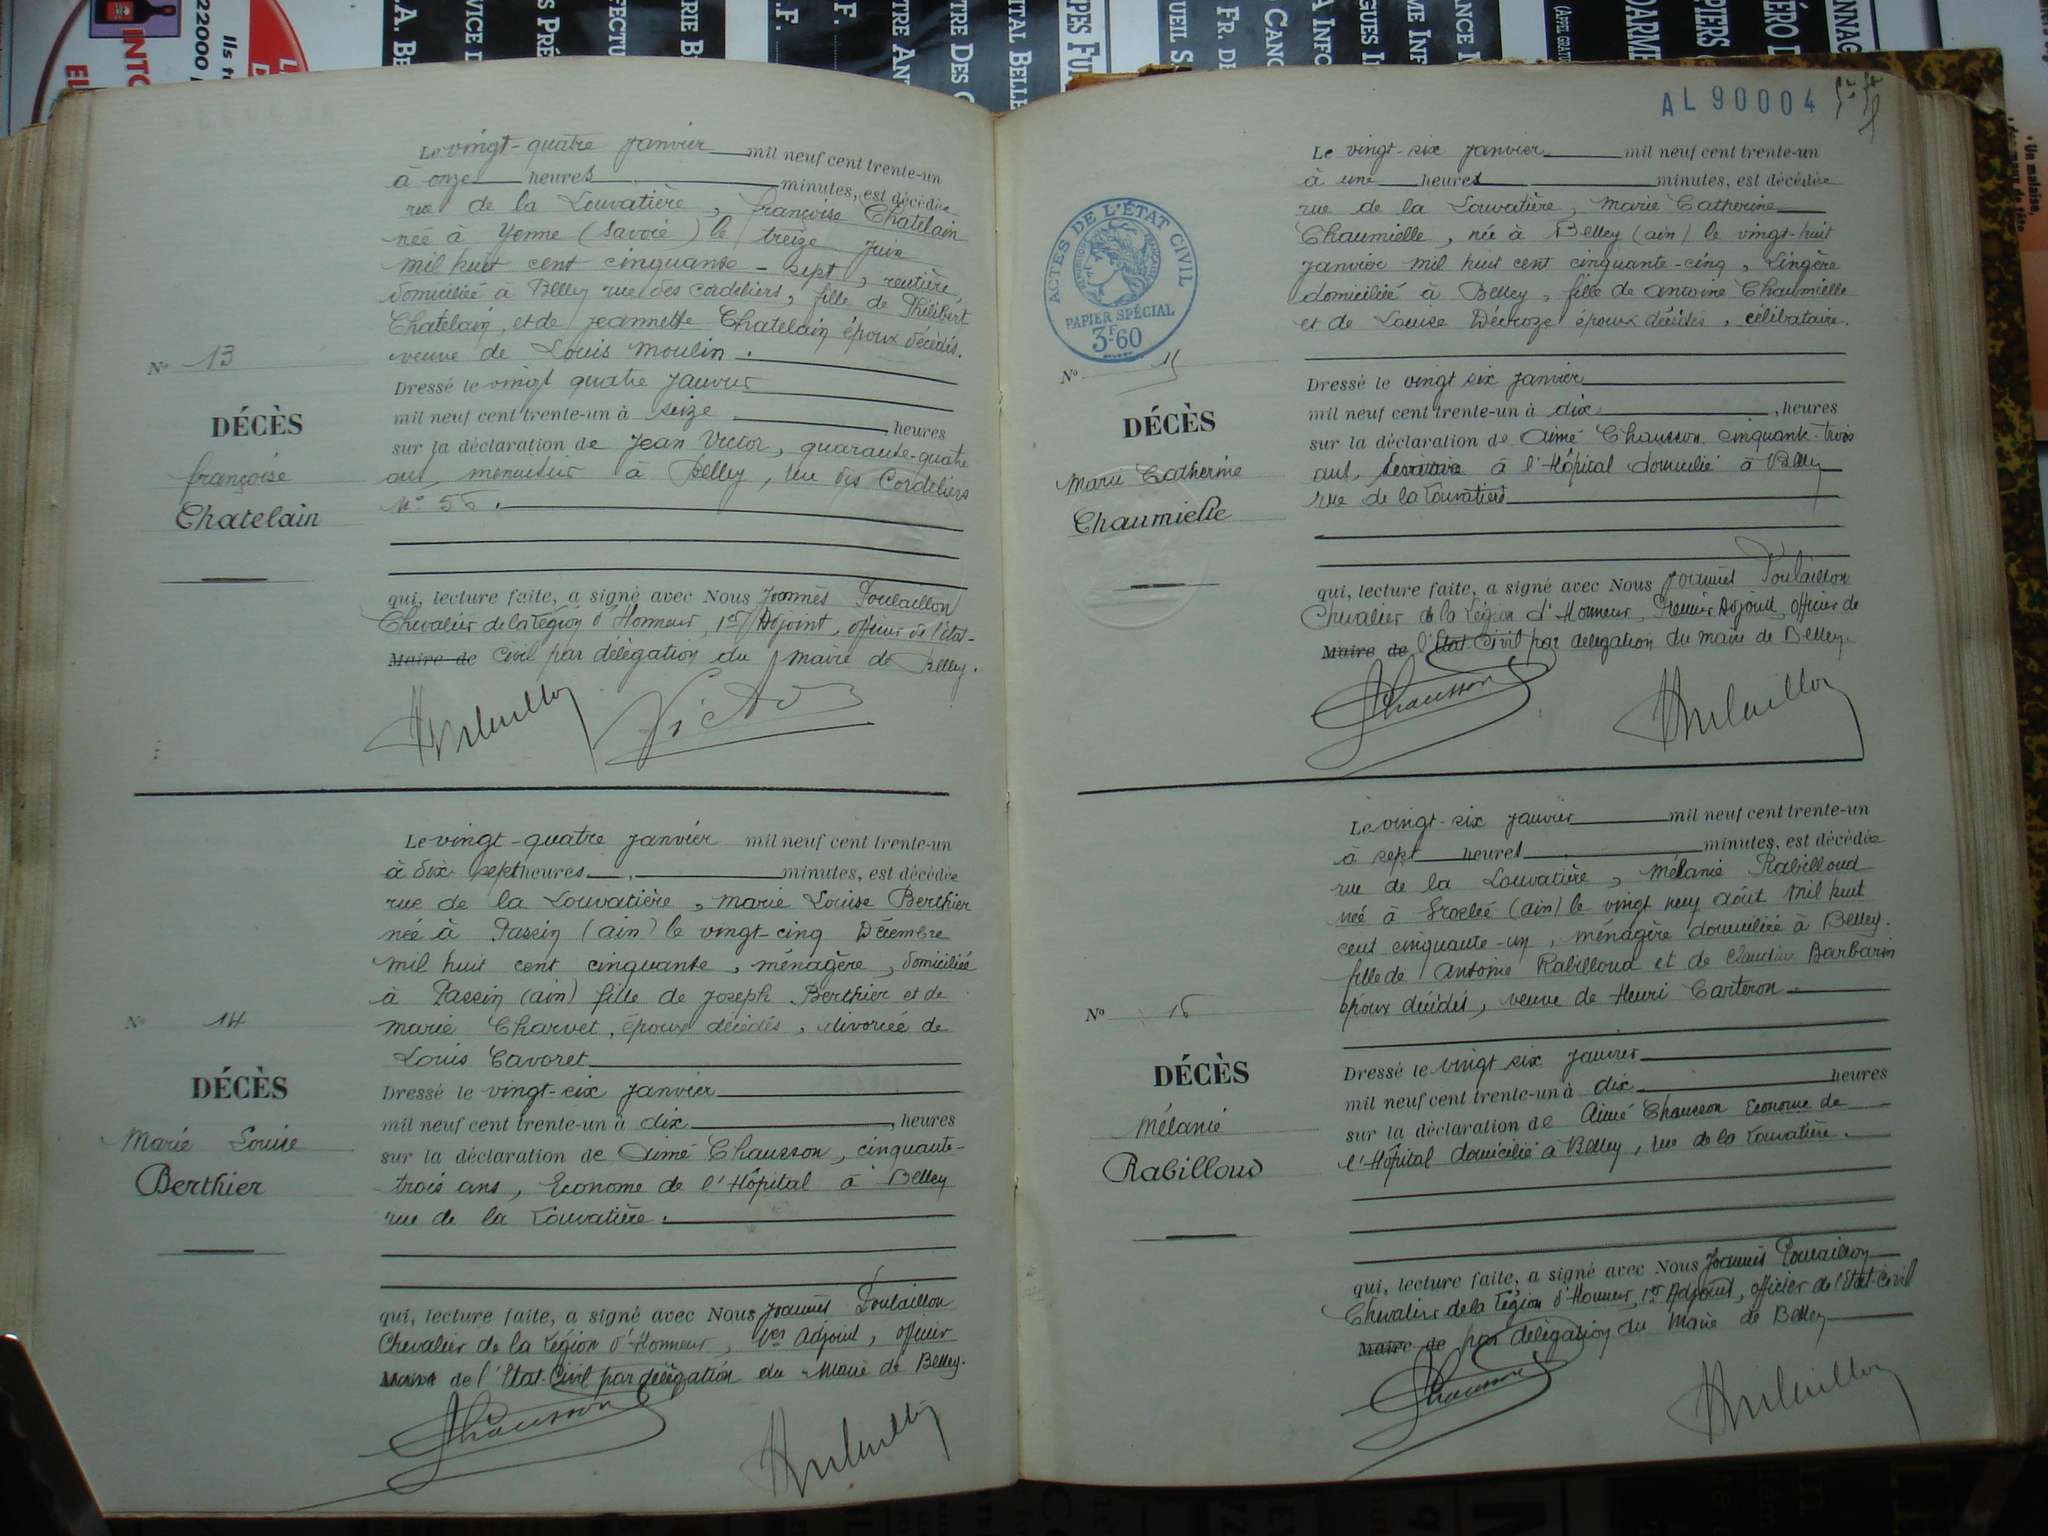 AL 90004
Le vingt-quatre janvier mil neuf cent trente-un
à onze heures minutes, est décédée
rue de la Louvatière, françoise Chatelain
née à Yenne (Savoie) le treize juin
mil huit cent cinquante-sept, rentière,
domiciliée à Belley rue des Cordeliers, fille de Philibert
Chatelain, et de Jeannette Chatelain époux décédés.
veuve de Louis Moulin.
Dressé le vingt quatre janvier
mil neuf cent trente-un à seize heures
sur la déclaration de Jean Victor, quarante-quatre
ans, menuisier à Belley, rue des Cordeliers
N° 56.
qui, lecture faite, a signé avec Nous Joannès Poulaillon
Chevalier de la Légion d'Honneur, 1er Adjoint, officier de l'état-
Maire de civil par délégation du Maire de Belley.
Victor
N° 13
DÉCÈS
françoise
Chatelain
Le vingt-quatre janvier mil neuf cent trente-un
à dix-sept heures minutes, est décédée
rue de la Louvatière, Marie Louise Berthier
née à Passin (ain) le vingt-cinq Décembre
mil huit cent cinquante, ménagère, domiciliée
à Passin (ain) fille de Joseph Berthier et de
Marie Charvet, époux décédés, divorcée de
Louis Cavoret
Dressé le vingt-six janvier
mil neuf cent trente-un à dix heures
sur la déclaration de Aimé Chausson, cinquante-
trois ans, Econome de l'Hôpital à Belley
rue de la Louvatière.
qui, lecture faite, a signé avec Nous Joannès Poulaillon
Chevalier de la Légion d'Honneur, 1er Adjoint, officier
Maire de l'Etat-Civil par délégation du Maire de Belley.
Chausson
N° 14
DÉCÈS
Marie Louise
Berthier
Le vingt-six janvier mil neuf cent trente-un
à une heures minutes, est décédée
rue de la Louvatière, Marie Catherine
Chaumielle, née à Belley (ain) le vingt-huit
janvier mil huit cent cinquante-cinq, Lingère
domiciliée à Belley, fille de Antoine Chaumielle
et de Louise Décroze époux décédés, célibataire.
Dressé le vingt six janvier
mil neuf cent trente-un à dix, heures
sur la déclaration de Aimé Chausson cinquante-trois
ans, à l'Hôpital domicilié à Belley
rue de la Louvatière
qui, lecture faite, a signé avec Nous Joannès Poulaillon
Chevalier de la Légion d'Honneur, Premier Adjoint, officier de
Maire de l'Etat-Civil par délégation du Maire de Belley.
Chausson
ACTES DE L'ÉTAT CIVIL
RÉPUBLIQUE FRANÇAISE
PAPIER SPÉCIAL
3F60
N° 15
DÉCÈS
Marie Catherine
Chaumielle
Le vingt-six janvier mil neuf cent trente-un
à sept heures minutes, est décédée
rue de la Louvatière, Mélanie Rabilloud
née à Groslée (ain) le vingt neuf août mil huit
cent cinquante-un, ménagère domiciliée à Belley.
fille de Antoine Rabilloud et de Claudine Barbarin
époux décédés, veuve de Henri Carteron.
Dressé le vingt six janvier
mil neuf cent trente-un à dix heures
sur la déclaration de Aimé Chausson Econome de
l'Hôpital domicilié à Belley, rue de la Louvatière.
qui, lecture faite, a signé avec Nous Joannès Poulaillon
Chevalier de la Légion d'Honneur, 1er Adjoint, officier de l'Etat-Civil
Maire de par délégation du Maire de Belley
Chausson
N° 16
DÉCÈS
Mélanie
Rabilloud